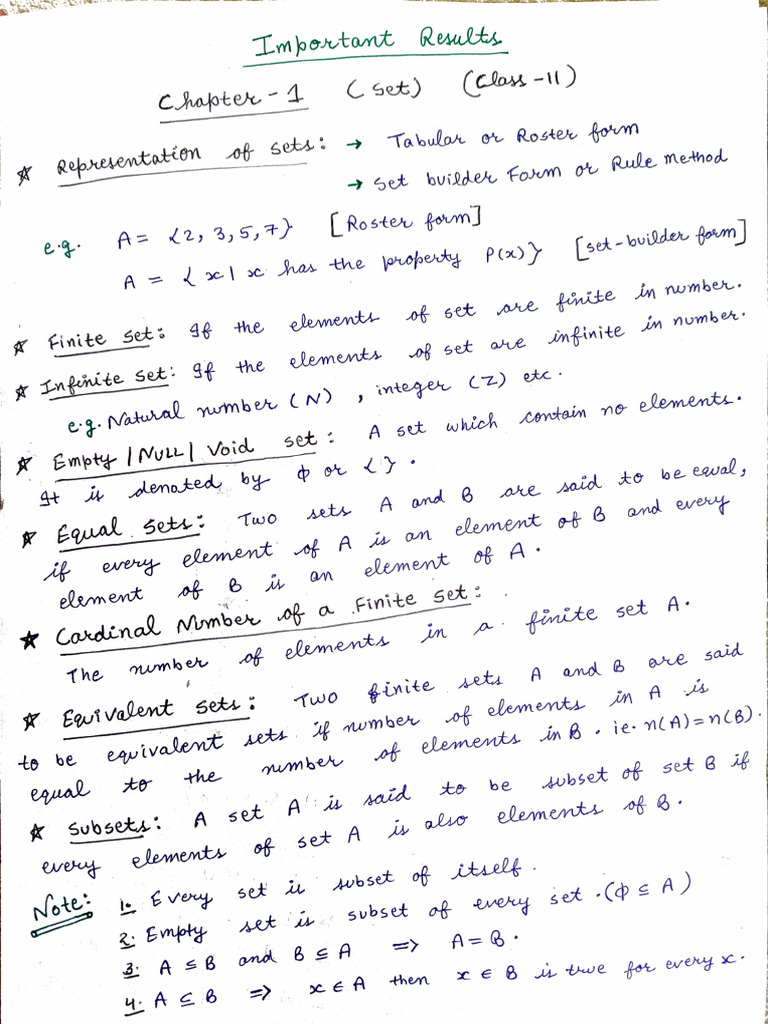 Important Results
Chapter-1 (Set) (Class-11)
★ Representation of sets: → Tabular or Roster form
→ Set builder Form or Rule Method
e.g. A = {2, 3, 5, 7} [Roster form]
A = {x | x has the property P(x)} [set-builder form]
★ Finite set: If the elements of set are finite in number.
★ Infinite set: If the elements of set are infinite in number.
e.g. Natural number (N), integer (Z) etc.
★ Empty / NULL / Void set: A set which contain no elements.
It is denated by Φ or { }.
★ Equal sets: Two sets A and B are said to be equal,
if every element of A is an element of B and every
element of B is an element of A.
★ Cardinal Number of a Finite set:
The number of elements in a finite set A.
★ Equivalent sets: Two finite sets A and B are said
to be equivalent sets if number of elements in A is
equal to the number of elements in B. ie. n(A)=n(B).
★ Subsets: A set A is said to be subset of set B if
every elements of set A is also elements of B.
Note: 1. Every set is subset of itself.
2. Empty set is subset of every set. (Φ ⊆ A)
3. A ⊆ B and B ⊆ A ⇒ A = B.
4. A ⊆ B ⇒ x ∈ A then x ∈ B is true for every x.